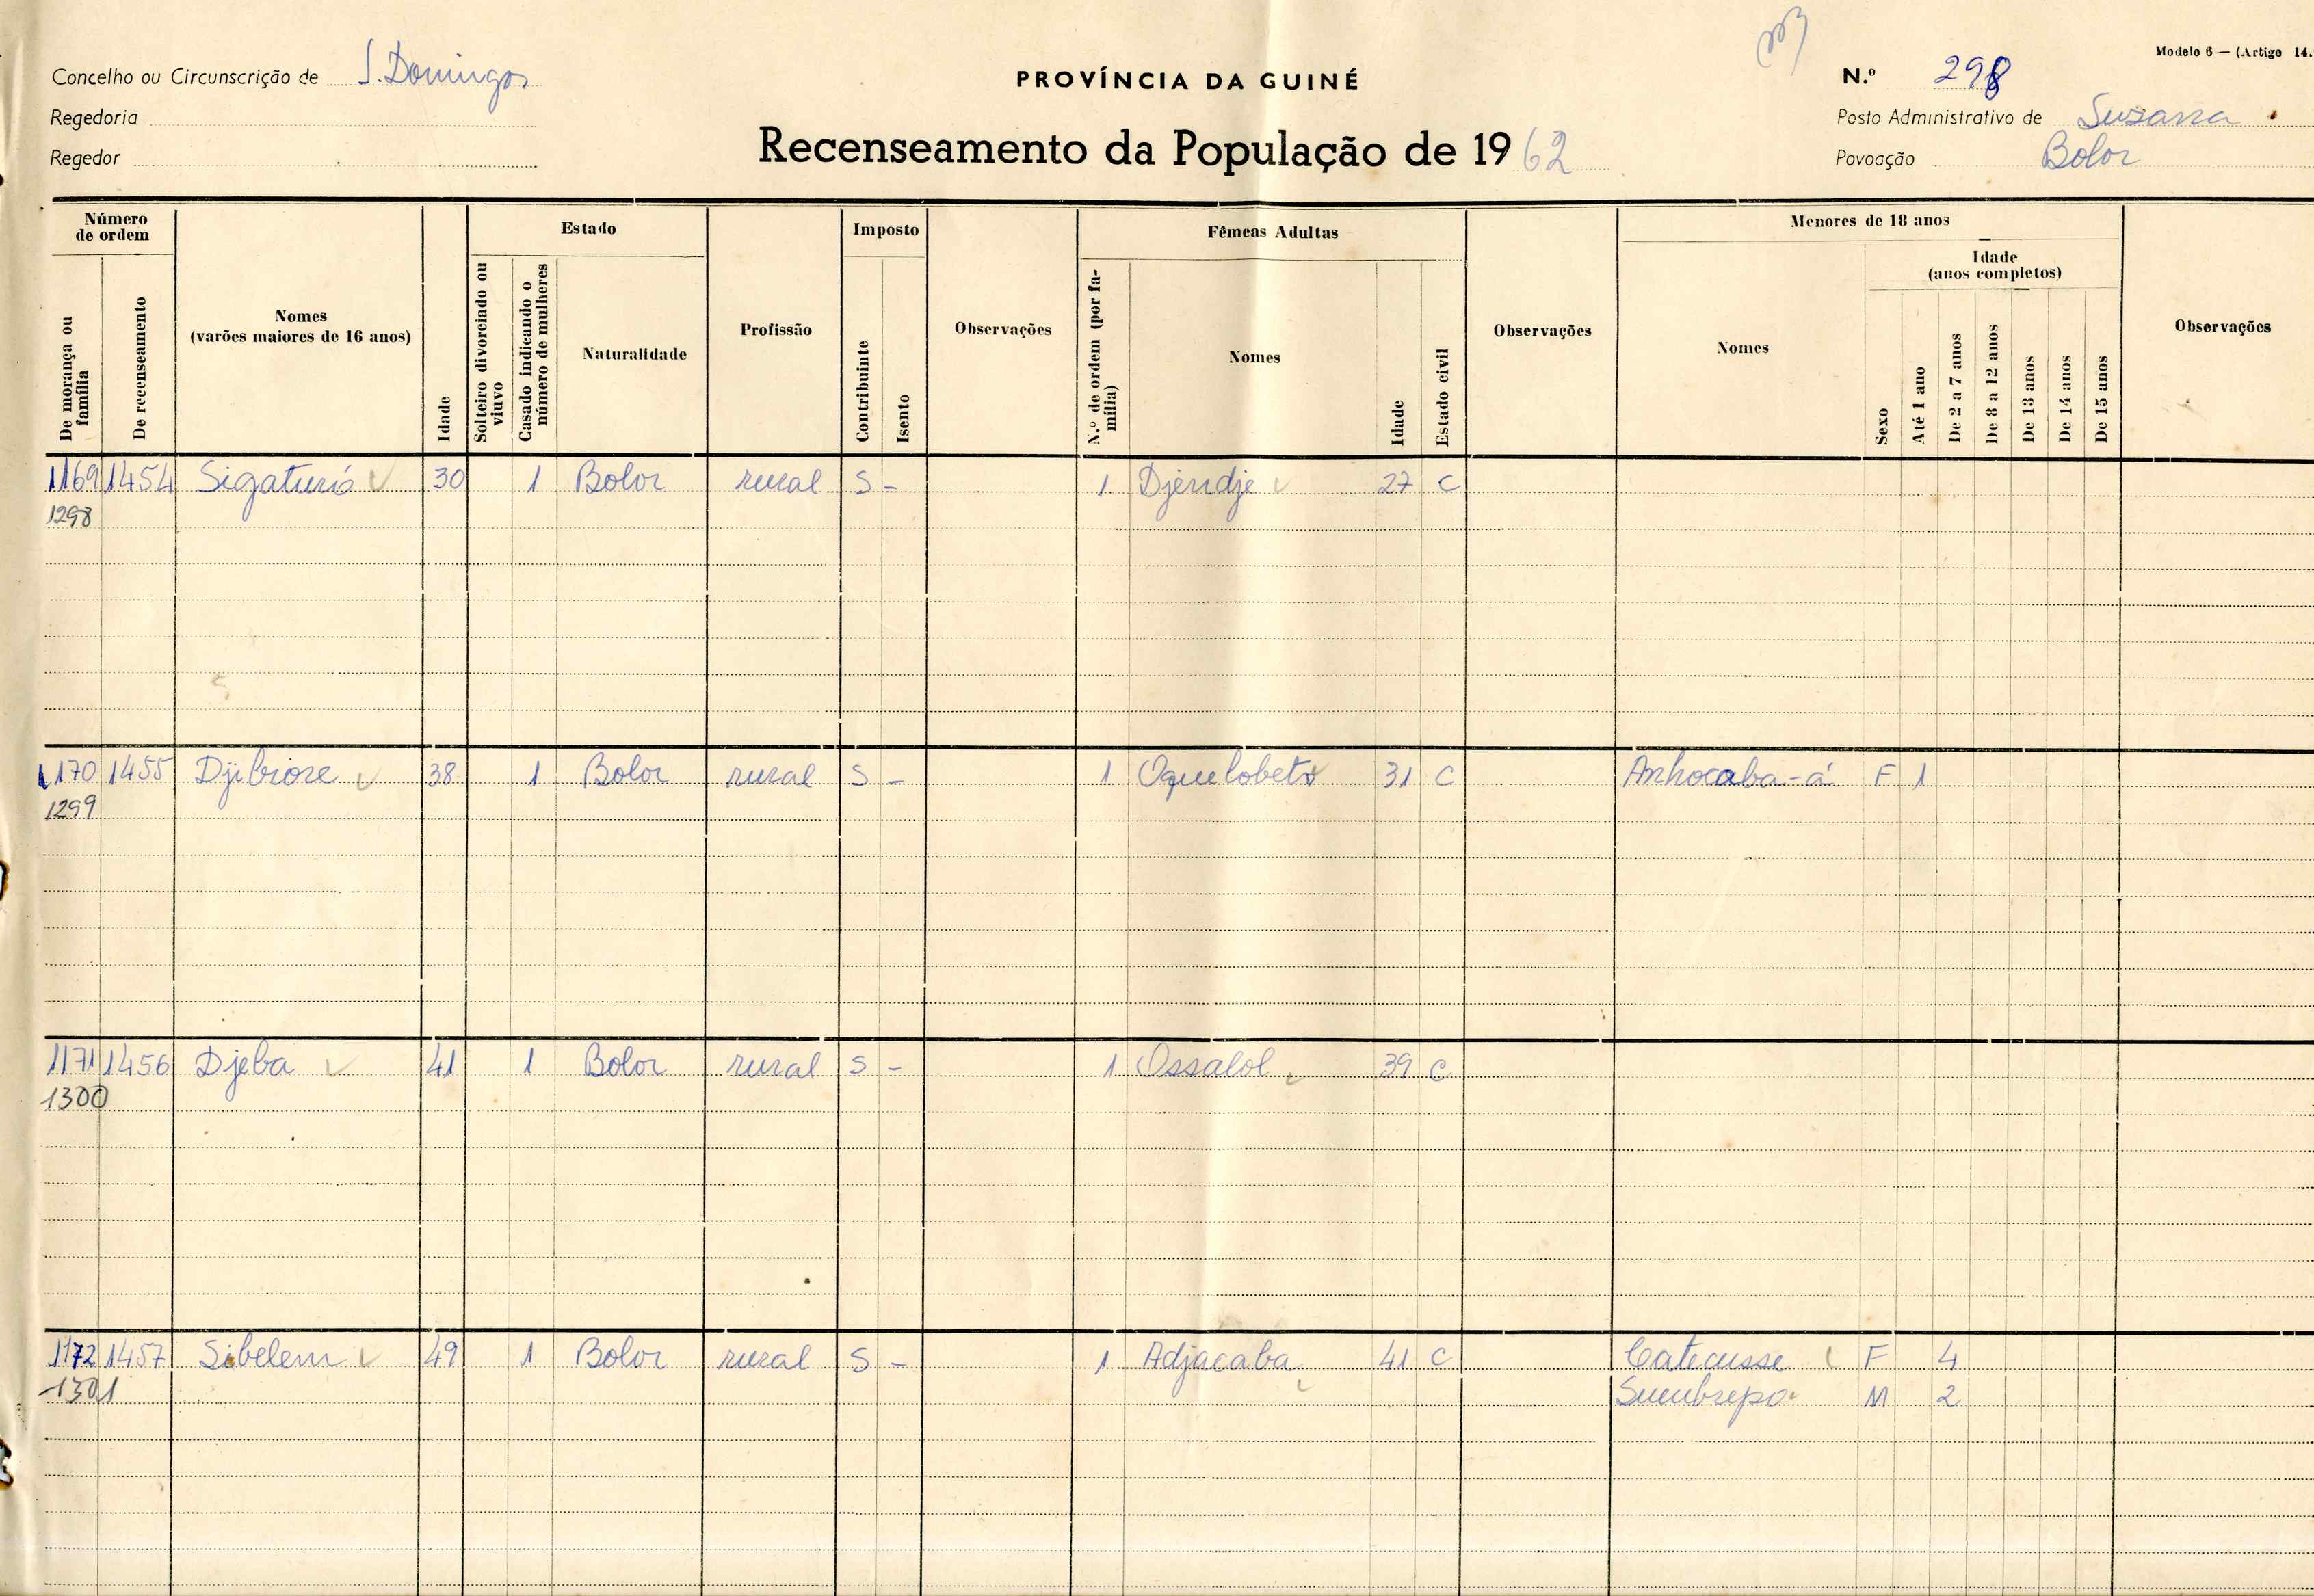 Modelo 6 — (Artigo 14.
Concelho ou Circunscrição de S. Domingos
PROVÍNCIA DA GUINÉ
N.º 298
Regedoria
Posto Administrativo de Suzana
Regedor
Recenseamento da População de 1962
Povoação Bolor
Número de ordem
Estado
Imposto
Fêmeas Adultas
Menores de 18 anos
Idade (anos completos)
De morança ou família
De recenseamento
Nomes (varões maiores de 16 anos)
Idade
Solteiro divorciado ou viuvo
Casado indicando o número de mulheres
Naturalidade
Profissão
Contribuinte
Isento
Observações
N.º de ordem (por família)
Nomes
Idade
Estado civil
Observações
Nomes
Sexo
Até 1 ano
De 2 a 7 anos
De 8 a 12 anos
De 13 anos
De 14 anos
De 15 anos
Observações
1169 1454 Sigaturó 30 1 Bolor rural S - 1 Djendje 27 C
1298
1170 1455 Djibiore 38 1 Bolor rural S - 1 Oquelobeto 31 C Anhocaba-á F 1
1299
1171 1456 Djeba 41 1 Bolor rural S - 1 Ossalol 39 C
1300
1172 1457 Sibelem 49 1 Bolor rural S - 1 Adjacaba 41 C Catecusse F 4
1301 M 2